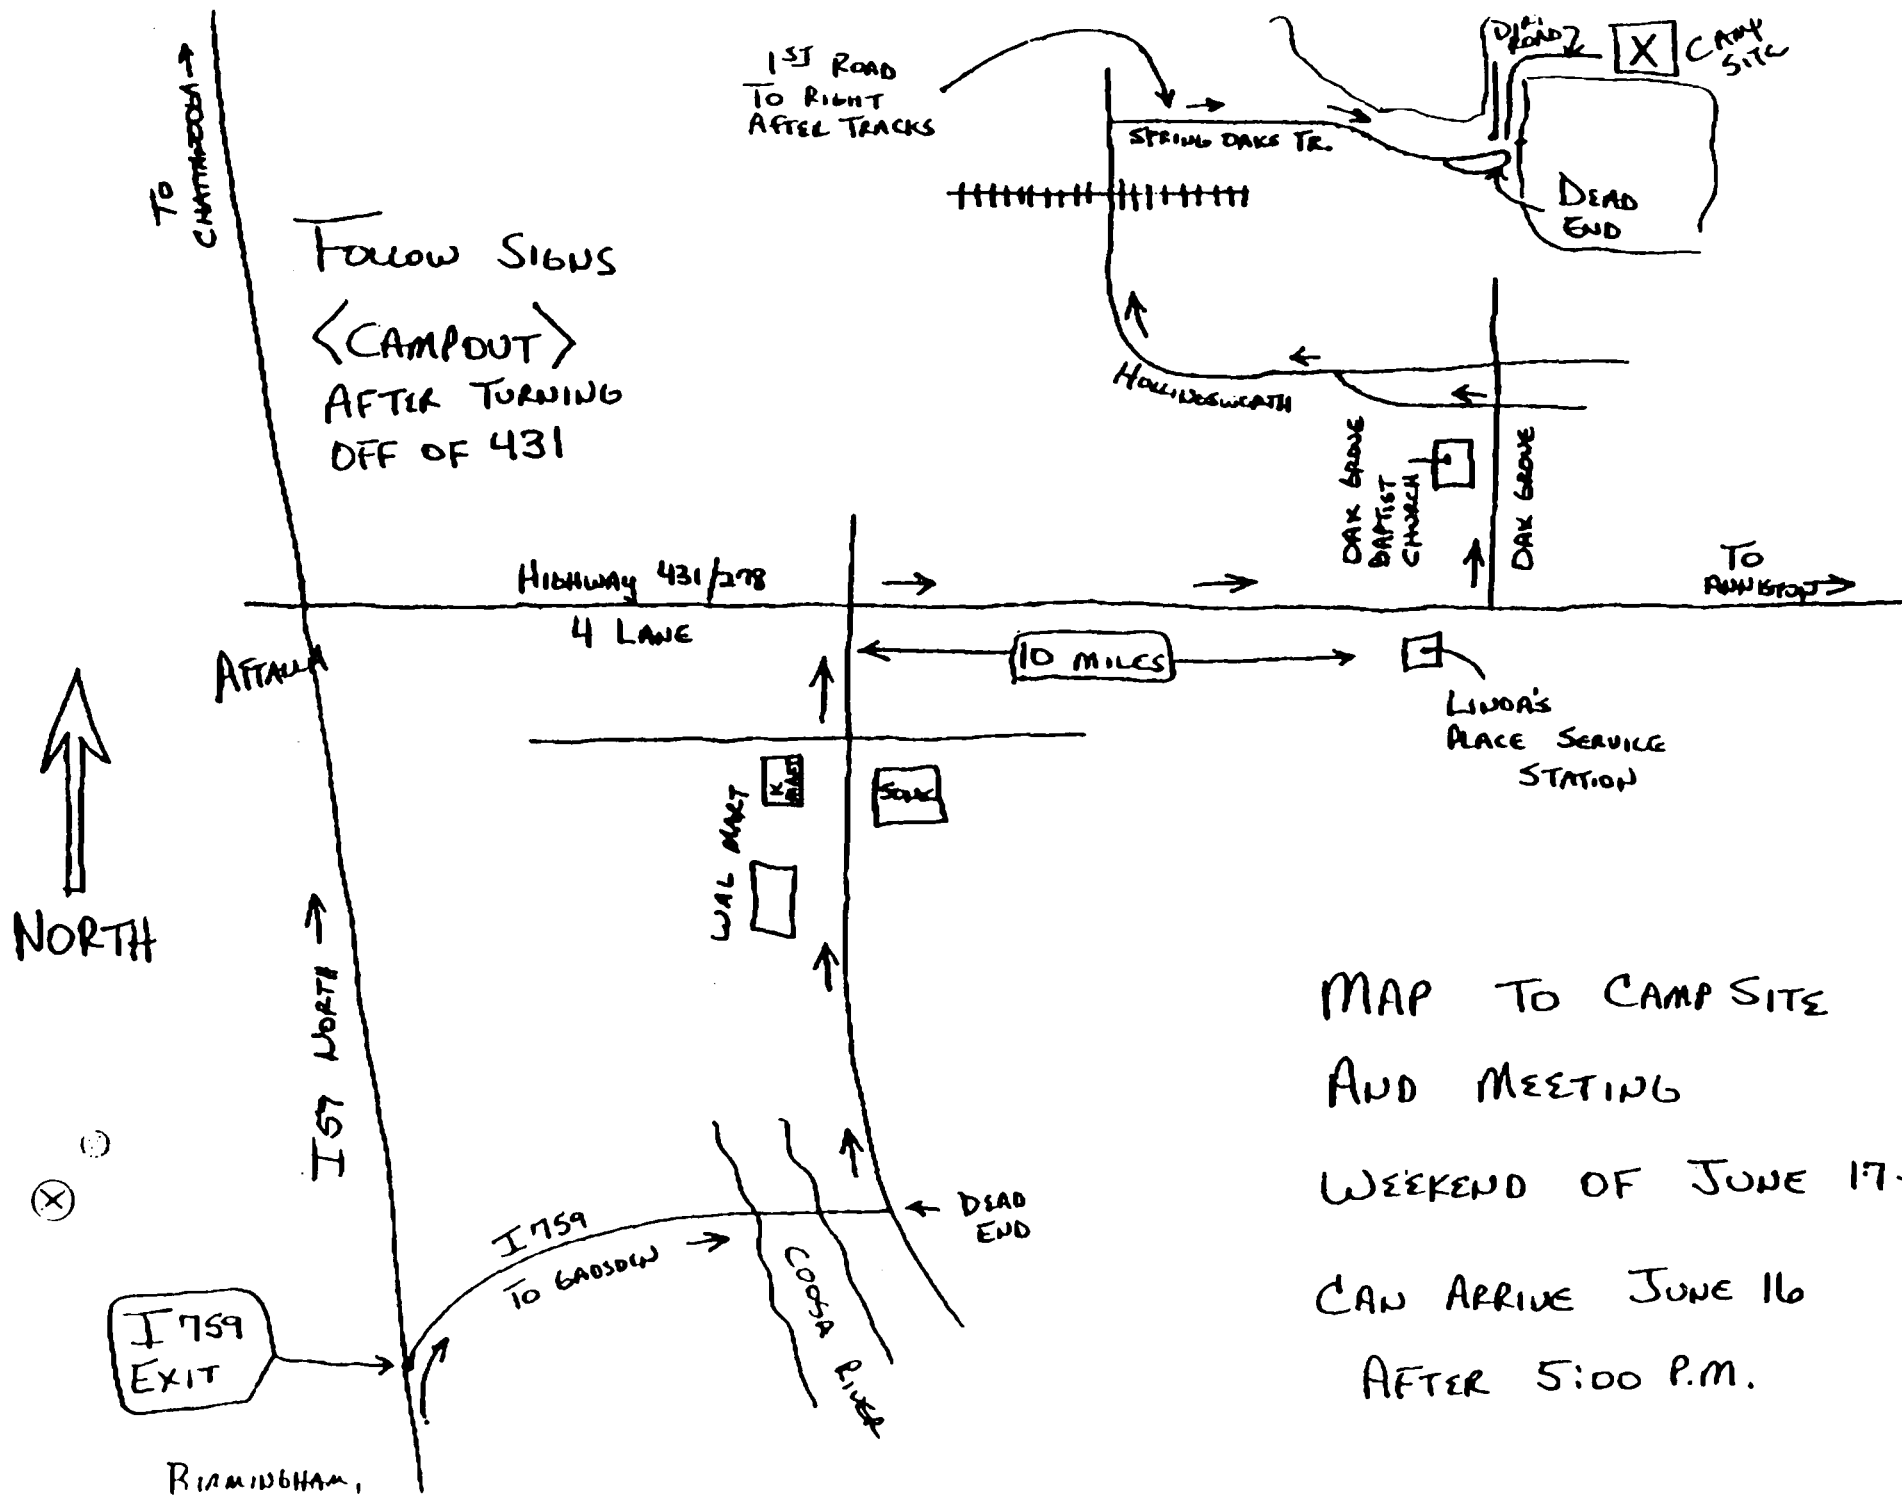 To
CHATTANOOGA →
1ST ROAD
TO RIGHT
AFTER TRACKS
DIRT
ROAD
X
CAMP
SITE
SPRING OAKS TR.
DEAD
END
FOLLOW SIGNS
<CAMPOUT>
AFTER TURNING
OFF OF 431
HOLLINGSWORTH
OAK GROVE
BAPTIST
CHURCH
OAK GROVE
HIGHWAY 431/278
4 LANE
TO
ANNISTON
ATTALLA
10 MILES
LINDA'S
PLACE SERVICE
STATION
K
MART
SONIC
WAL MART
NORTH
I 59 NORTH →
MAP TO CAMP SITE
AND MEETING
WEEKEND OF JUNE 17-
CAN ARRIVE JUNE 16
AFTER 5:00 P.M.
DEAD
END
I 759
TO GADSDEN
COOSA RIVER
I 759
EXIT
BIRMINGHAM,